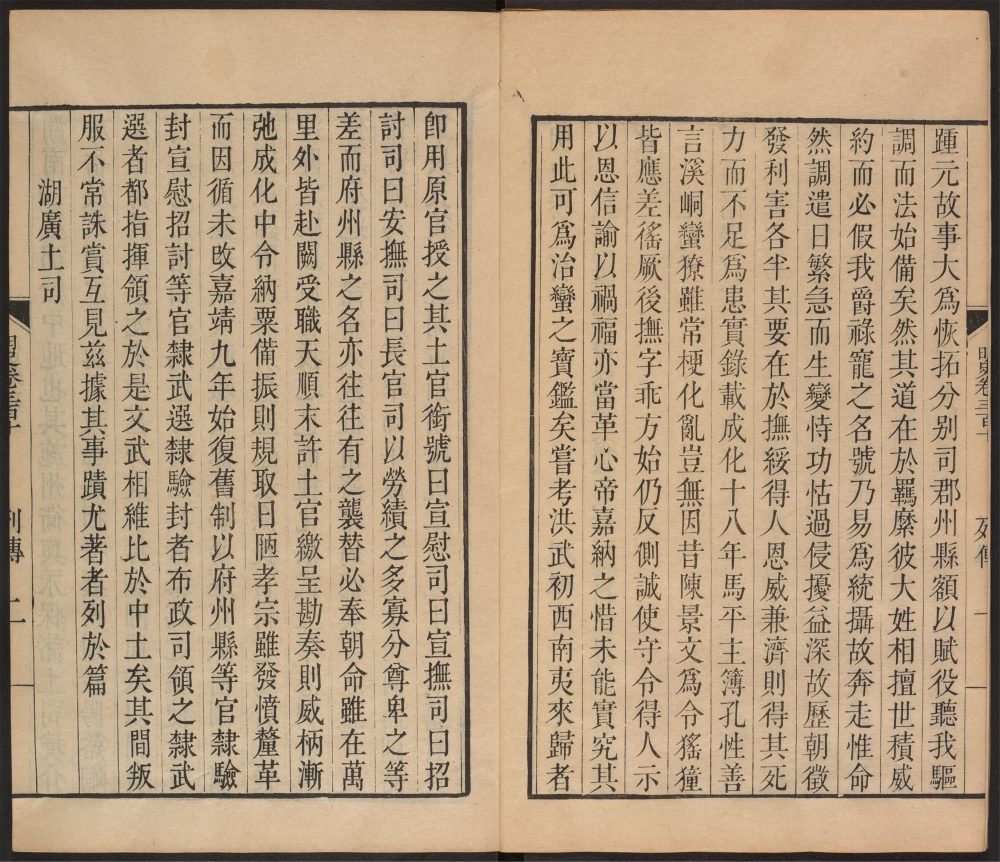 踵元故事大爲恢拓分别司郡州縣額以賦役聽我驅
調而法始備矣然其道在於羈縻彼大姓相擅世積威
約而必假我爵祿寵之名號乃易爲統攝故奔走惟命
然調遣日繁急而生變恃功怙過侵擾益深故歷朝徵
發利害各半其要在於撫綏得人恩威兼濟則得其死
力而不足爲患實錄載成化十八年馬平主簿孔性善
言溪峒蠻獠雖常梗化亂豈無因昔陳景文爲令猺獞
皆應差徭厥後撫字乖方始仍反側誠使守令得人示
以恩信諭以禍福亦當革心帝嘉納之惜未能實究其
用此可爲治蠻之寶鑑矣嘗考洪武初西南夷來歸者
列傳
一
卽用原官授之其土官銜號曰宣慰司曰宣撫司曰招
討司曰安撫司曰長官司以勞績之多寡分尊卑之等
差而府州縣之名亦往往有之襲替必奉朝命雖在萬
里外皆赴闕受職天順末許土官繳呈勘奏則威柄漸
弛成化中令納粟備振則規取日陋孝宗雖發憤釐革
而因循未攺嘉靖九年始復舊制以府州縣等官隸驗
封宣慰招討等官隸武選隸驗封者布政司領之隸武
選者都指揮領之於是文武相維比於中土矣其間叛
服不常誅賞互見茲據其事蹟尤著者列於篇
湖廣土司
列傳
二